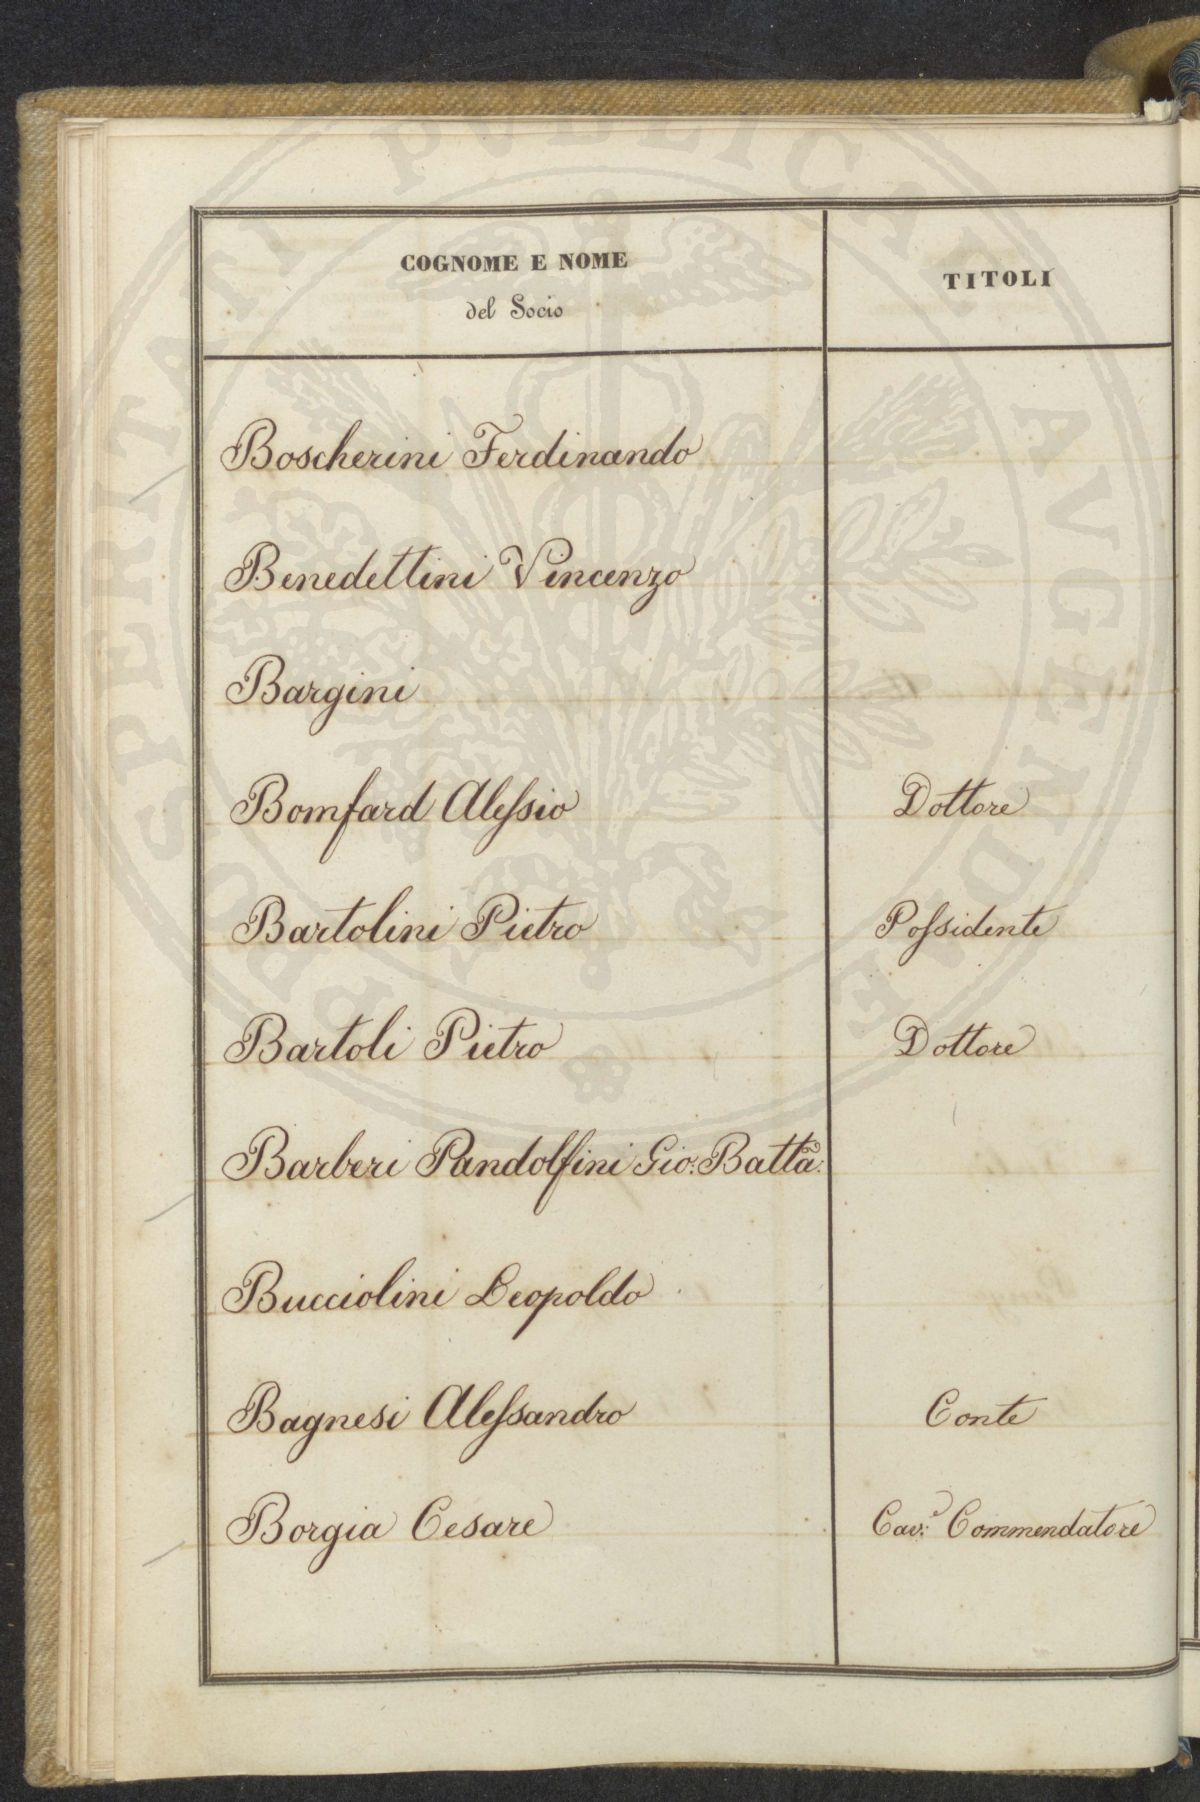 PROSPERITATI PVBLICAE AVGENDAE
COGNOME E NOME TITOLI
del Socio
Boscherini Ferdinando
Benedettini Vincenzo
Bargini
Bomfard Aleſsio Dottore
Bartolini Pietro Poſsidente
Bartoli Pietro Dottore
Barberi Pandolfini Gio: Batta:
Bucciolini Leopoldo
Bagnesi Aleſsandro Conte
Borgia Cesare Cav:e Commendatore